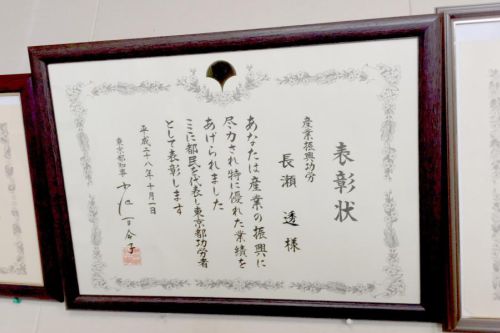 表彰状
産業振興功労
長瀬 透 様
あなたは産業の振興に
尽力され特に優れた業績を
あげられました
ここに都民を代表し東京都功労者
として表彰します
平成二十八年十月一日
東京都知事 小池百合子